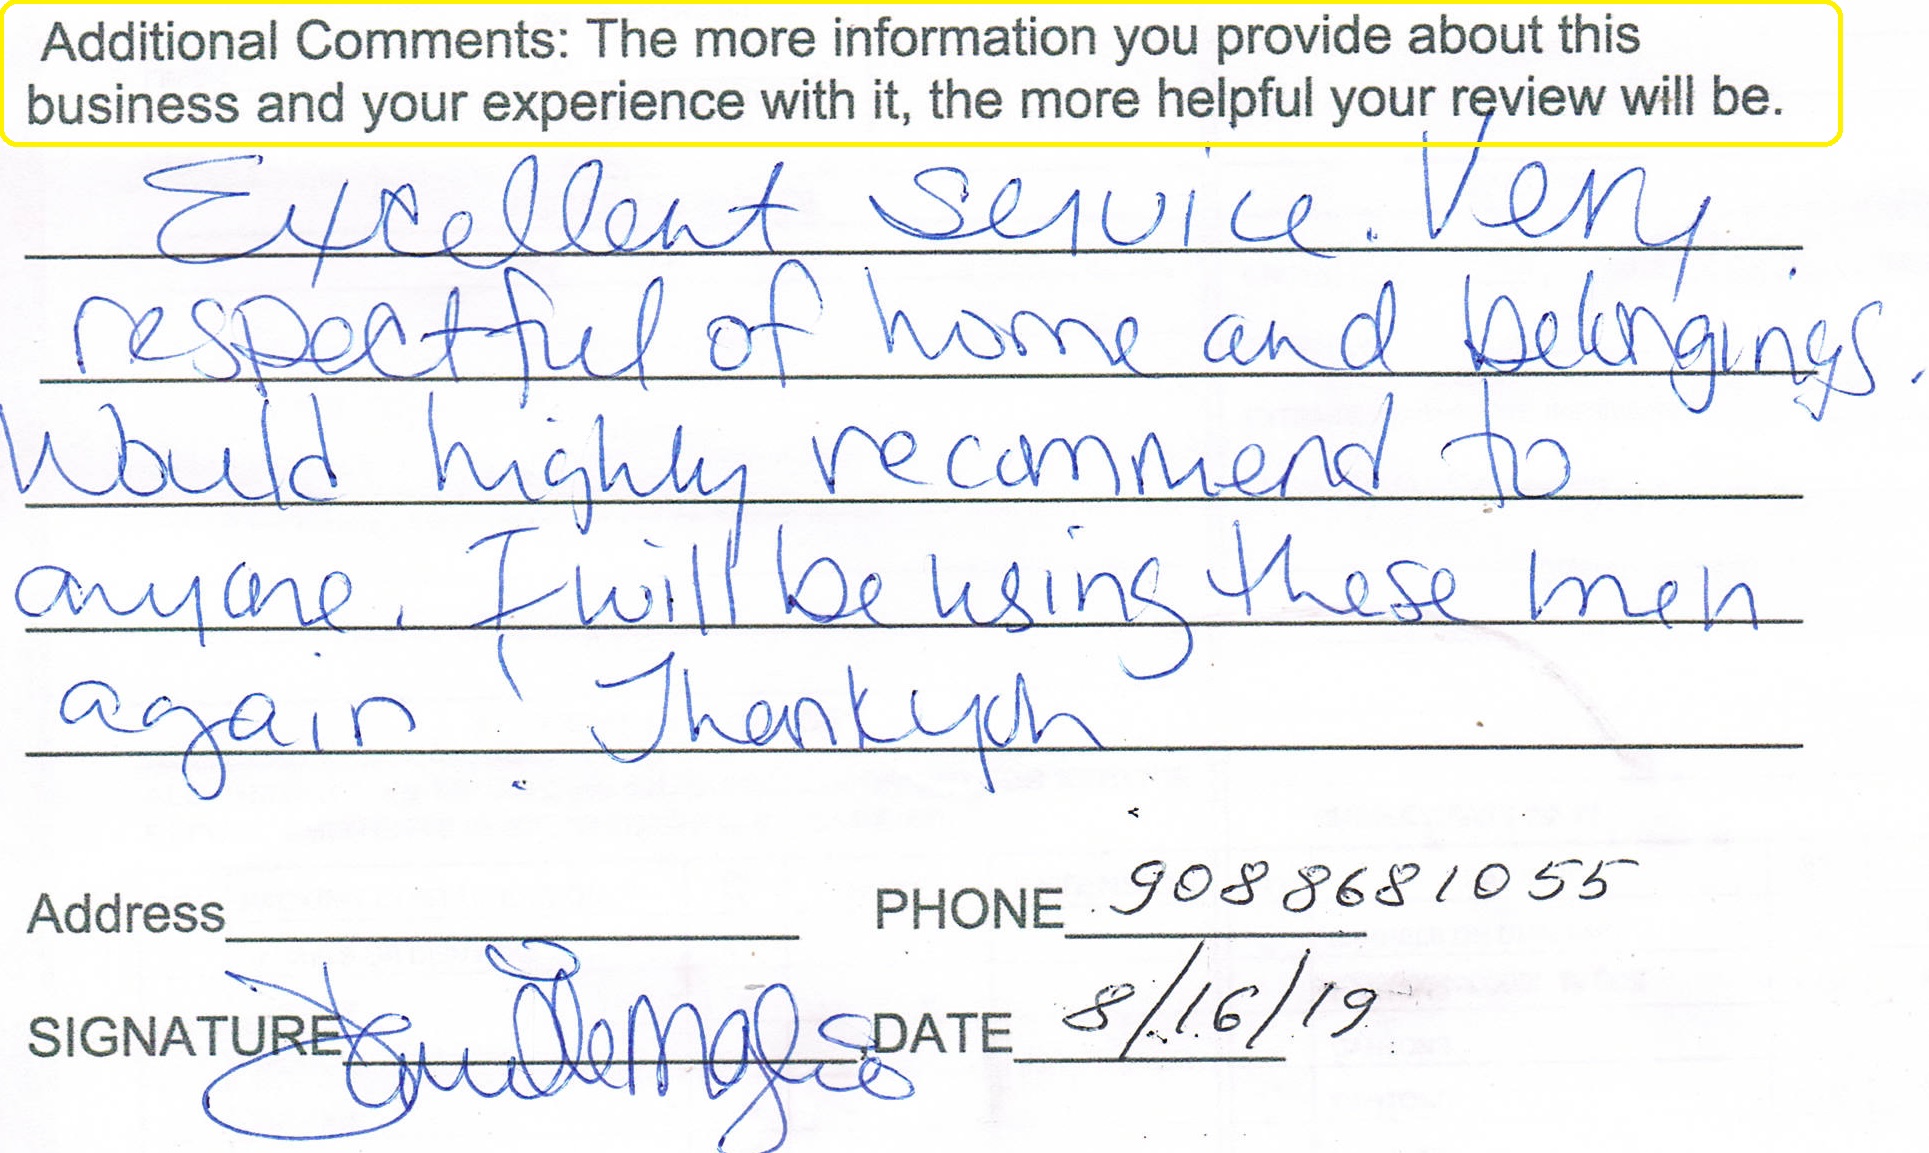 Additional Comments: The more information you provide about this
business and your experience with it, the more helpful your review will be.
Excellent service. Very
respectful of home and belongings.
Would highly recommend to
anyone. I will be using these men
again! Thankyou
Address PHONE 9088681055
SIGNATURE DATE 8/16/19